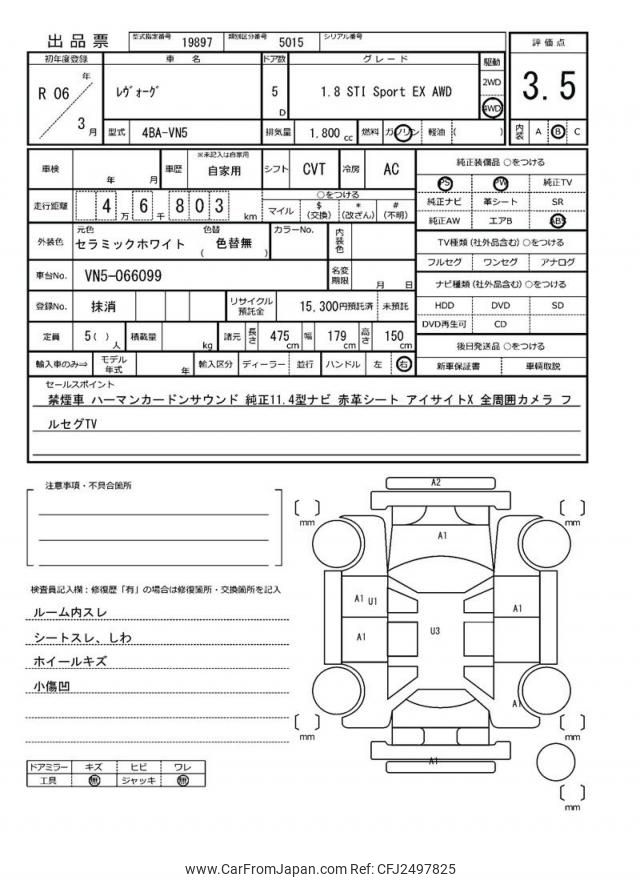 出品票
型式指定番号 19897 類別区分番号 5015 シリアル番号
初年度登録 車名 ドア数 グレード 駆動 評価点
R 06 年 3 月
ﾚｳﾞｫｰｸﾞ 5 D 1.8 STI Sport EX AWD 2WD 4WD 3.5
型式 4BA-VN5 排気量 1.800 cc 燃料 ガソリン 軽油 ( ) 内装 A B C
車検 年 月 車歴 ※未記入は自家用 自家用 シフト CVT 冷房 AC
走行距離 4 万 6 千 8 0 3 km ○をつける マイル $ (交換) * (改ざん) # (不明)
外装色 元色 セラミックホワイト 色替 ( 色替無 ) カラーNo. 内装色
車台No. VN5-066099 名変期限 月 日
登録No. 抹消 リサイクル預託金 15,300円預託済 未預託
定員 5( ) 人 積載量 kg 諸元 長さ 475 cm 幅 179 cm 高さ 150 cm
輸入車のみ⇒ モデル年式 年 輸入区分 ディーラー 並行 ハンドル 左 右
純正装備品 ○をつける
PS PW 純正TV
純正ナビ 革シート SR
純正AW エアB ABS
TV種類(社外品含む)○をつける
フルセグ ワンセグ アナログ
ナビ種類(社外品含む)○をつける
HDD DVD SD
DVD再生可 CD
後日発送品 ○をつける
新車保証書 車輌取説
セールスポイント
禁煙車 ハーマンカードンサウンド 純正11.4型ナビ 赤革シート アイサイトX 全周囲カメラ フ
ルセグTV
注意事項・不具合箇所
検査員記入欄：修復歴「有」の場合は修復箇所・交換箇所を記入
ルーム内スレ
シートスレ、しわ
ホイールキズ
小傷凹
ドアミラー キズ ヒビ ワレ
工具 無 ジャッキ 無
A2
[ ] mm [ ] mm
A1
A1 U1 A1
A1 U3 A1
A1
[ ] mm [ ] mm
A1
[ ] mm
www.CarFromJapan.com Ref: CFJ2497825